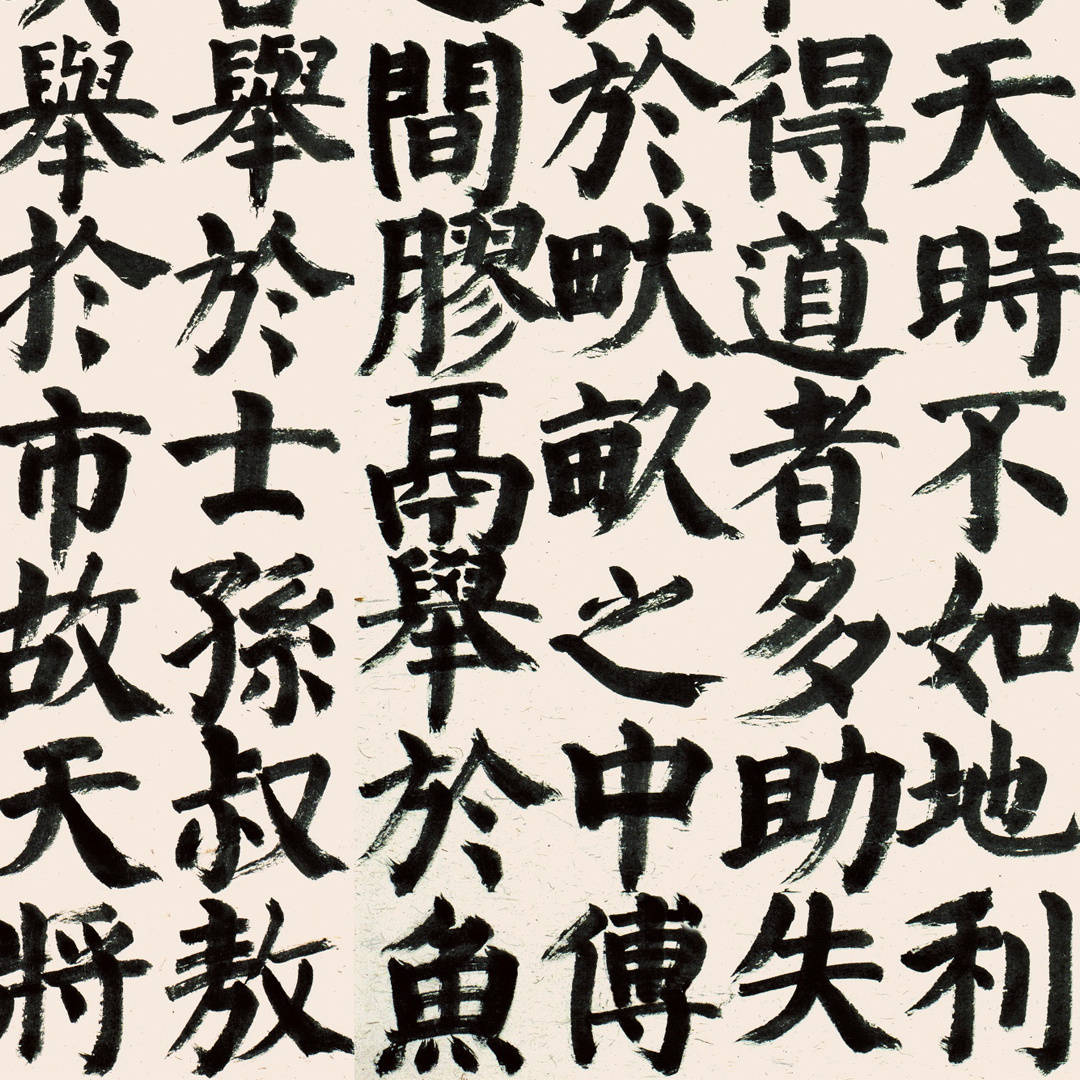 天時不如地利
得道者多助失
於畎畝之中傅
間膠鬲舉於魚
舉於士孫叔敖
舉於市故天將